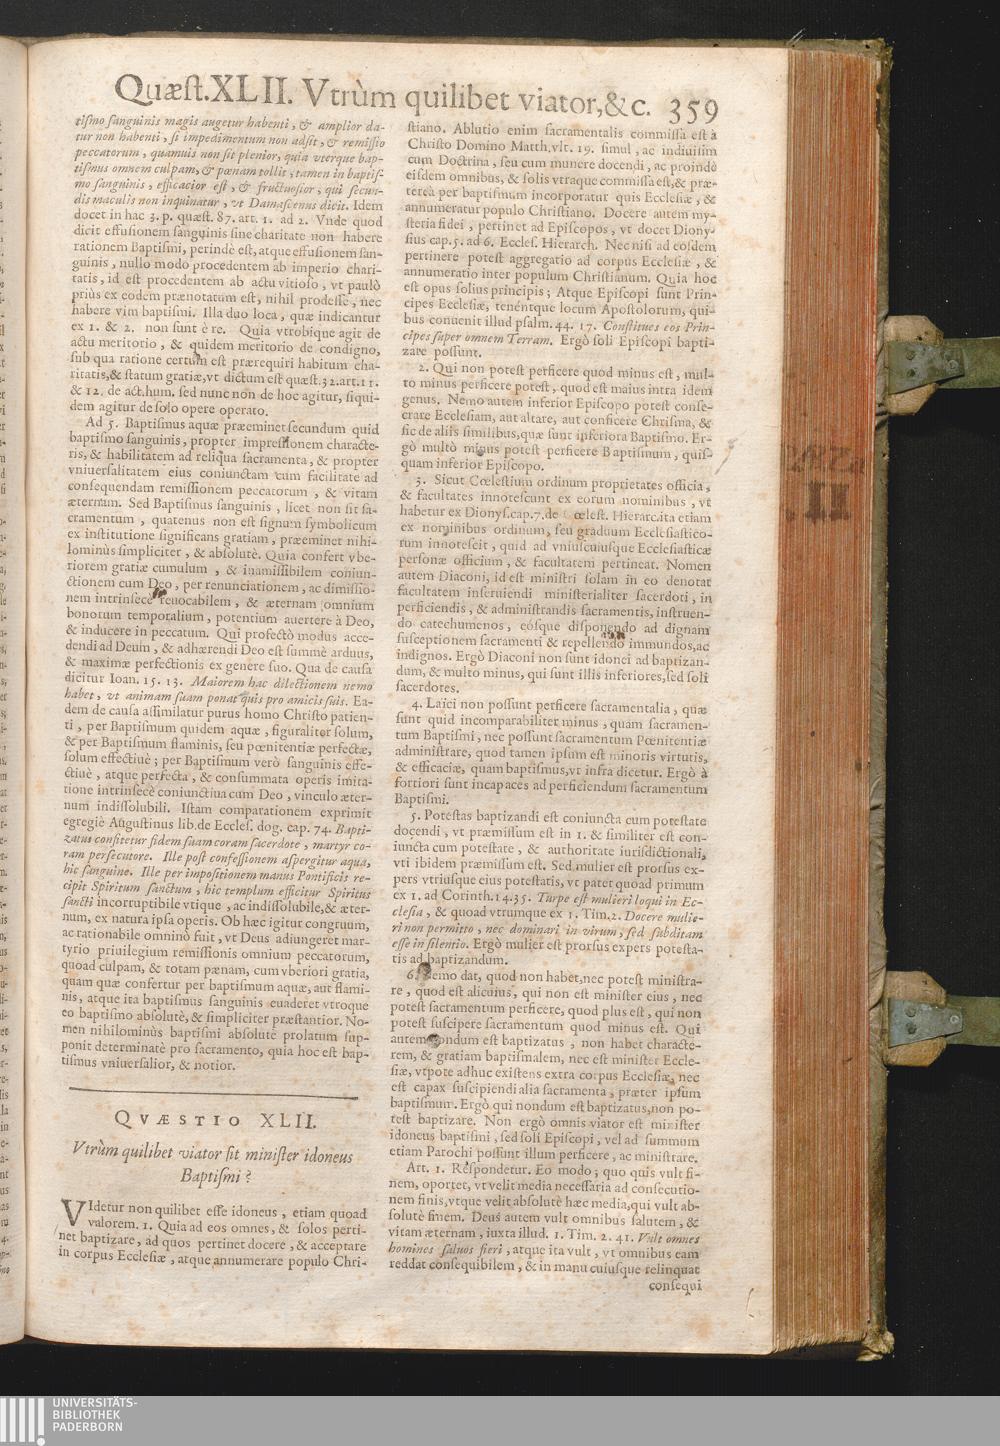 Quæſt.XLII. Vtrùm quilibet viator,&c. 359
tiſmo ſanguinis magis augetur habenti, & amplior da-
tur non habenti, ſi impedimentum non adſit, & remiſſio
peccatorum, quamuis non ſit plenior, quia vterque bap-
tiſmus omnem culpam, & pœnam tollit, tamen in baptiſ-
mo ſanguinis, efficacior eſt, & fructuoſior, qui ſecun-
dis maculis non inquinatur, vt Damaſcenus dicit. Idem
docet in hac 3. p. quæſt. 87. art. 1. ad 2. Vnde quod
dicit effuſionem ſanguinis ſine charitate non habere
rationem Baptiſmi, perindè eſt, atque effuſionem ſan-
guinis, nullo modo procedentem ab imperio chari-
tatis, id eſt procedentem ab actu vitioſo, vt paulò
priùs ex eodem prænotatum eſt, nihil prodeſſe, nec
habere vim baptiſmi. Illa duo loca, quæ indicantur
ex 1. & 2. non ſunt è re. Quia vtrobique agit de
actu meritorio, & quidem meritorio de condigno,
ſub qua ratione certum eſt prærequiri habitum cha-
ritatis,& ſtatum gratiæ,vt dictum eſt quæſt.32.art.11.
& 12. de act.hum. ſed nunc non de hoc agitur, ſiqui-
dem agitur de ſolo opere operato.
Ad 5. Baptiſmus aquæ præeminet ſecundum quid
baptiſmo ſanguinis, propter impreſſionem characte-
ris, & habilitatem ad reliqua ſacramenta, & propter
vniuerſalitatem eius coniunctam cum facilitate ad
conſequendam remiſſionem peccatorum, & vitam
æternam. Sed Baptiſmus ſanguinis, licet non ſit ſa-
cramentum, quatenus non eſt ſignum ſymbolicum
ex inſtitutione ſignificans gratiam, præeminet nihi-
lominùs ſimpliciter, & abſolutè. Quia confert vbe-
riorem gratiæ cumulum, & inamiſſibilem coniun-
ctionem cum Deo, per renunciationem, ac dimiſſio-
nem intrinſecè reuocabilem, & æternam omnium
bonorum temporalium, potentium auertere à Deo,
& inducere in peccatum. Qui profectò modus acce-
dendi ad Deum, & adhærendi Deo eſt ſummè arduus,
& maximæ perfectionis ex genere ſuo. Qua de cauſa
dicitur Ioan. 15. 13. Maiorem hac dilectionem nemo
habet, vt animam ſuam ponat quis pro amicis ſuis. Ea-
dem de cauſa aſſimilatur purus homo Chriſto patien-
ti, per Baptiſmum quidem aquæ, figuraliter ſolum,
& per Baptiſmum flaminis, ſeu pœnitentiæ perfectæ,
ſolum effectiuè; per Baptiſmum verò ſanguinis effe-
ctiuè, atque perfecta, & conſummata operis imita-
tione intrinſecè coniunctiua cum Deo, vinculo æter-
num indiſſolubili. Iſtam comparationem exprimit
egregiè Auguſtinus lib.de Eccleſ. dog. cap. 74. Bapti-
zatus confitetur fidem ſuam coram ſacerdote, martyr co-
ram perſecutore. Ille poſt confeſſionem aſpergitur aqua,
hic ſanguine. Ille per impoſitionem manus Pontificis re-
cipit Spiritum ſanctum, hic templum efficitur Spiritus
ſancti incorruptibile vtique, ac indiſſolubile,& æter-
num, ex natura ipſa operis. Ob hæc igitur congruum,
ac rationabile omninò fuit, vt Deus adiungeret mar-
tyrio priuilegium remiſſionis omnium peccatorum,
quoad culpam, & totam pænam, cum vberiori gratia,
quam quæ confertur per baptiſmum aquæ, aut flami-
nis, atque ita baptiſmus ſanguinis euaderet vtroque
eo baptiſmo abſolutè, & ſimpliciter præſtantior. No-
men nihilominùs baptiſmi abſolutè prolatum ſup-
ponit determinatè pro ſacramento, quia hoc eſt bap-
tiſmus vniuerſalior, & notior.
QVÆSTIO XLII.
Vtrùm quilibet viator ſit miniſter idoneus
Baptiſmi?
VIdetur non quilibet eſſe idoneus, etiam quoad
valorem. 1. Quia ad eos omnes, & ſolos perti-
net baptizare, ad quos pertinet docere, & acceptare
in corpus Eccleſiæ, atque annumerare populo Chri-
ſtiano. Ablutio enim ſacramentalis commiſſa eſt à
Chriſto Domino Matth.vlt. 19. ſimul, ac indiuiſim
cum Doctrina, ſeu cum munere docendi, ac proindè
eiſdem omnibus, & ſolis vtraque commiſſa eſt,& præ-
tereà per baptiſmum incorporatur quis Eccleſiæ, &
annumeratur populo Chriſtiano. Docere autem my-
ſteria fidei, pertinet ad Epiſcopos, vt docet Diony-
ſius cap.5. ad 6. Eccleſ. Hierarch. Nec niſi ad eoſdem
pertinere poteſt aggregatio ad corpus Eccleſiæ, &
annumeratio inter populum Chriſtianum. Quia hoc
eſt opus ſolius principis; Atque Epiſcopi ſunt Prin-
cipes Eccleſiæ, tenéntque locum Apoſtolorum, qui-
bus conuenit illud pſalm. 44. 17. Conſtitues eos Prin-
cipes ſuper omnem Terram. Ergò ſoli Epiſcopi bapti-
zare poſſunt.
2. Qui non poteſt perficere quod minus eſt, mul-
to minus perficere poteſt, quod eſt maius intra idem
genus. Nemo autem inferior Epiſcopo poteſt conſe-
crare Eccleſiam, aut altare, aut conficere Chriſma, &
ſic de aliis ſimilibus,quæ ſunt inferiora Baptiſmo. Er-
gò multò minus poteſt perficere Baptiſmum, quiſ-
quam inferior Epiſcopo.
3. Sicut Cœleſtium ordinum proprietates officia,
& facultates innoteſcunt ex eorum nominibus, vt
habetur ex Dionyſ.cap.7.de œleſt. Hierarc.ita etiam
ex nominibus ordinum, ſeu graduum Eccleſiaſtico-
rum innoteſcit, quid ad vniuſcuiuſque Eccleſiaſticæ
perſonæ officium, & facultatem pertineat. Nomen
autem Diaconi, id eſt miniſtri ſolam in eo denotat
facultatem inſeruiendi miniſterialiter ſacerdoti, in
perficiendis, & adminiſtrandis ſacramentis, inſtruen-
do catechumenos, eóſque diſponendo ad dignam
ſuſceptionem ſacramenti & repellendo immundos,ac
indignos. Ergò Diaconi non ſunt idonei ad baptizan-
dum, & multo minus, qui ſunt illis inferiores,ſed ſoli
ſacerdotes.
4. Laïci non poſſunt perficere ſacramentalia, quæ
ſunt quid incomparabiliter minus, quam ſacramen-
tum Baptiſmi, nec poſſunt ſacramentum Pœnitentiæ
adminiſtrare, quod tamen ipſum eſt minoris virtutis,
& efficaciæ, quam baptiſmus,vt infra dicetur. Ergò à
fortiori ſunt incapaces ad perficiendum ſacramentum
Baptiſmi.
5. Poteſtas baptizandi eſt coniuncta cum poteſtate
docendi, vt præmiſſum eſt in 1. & ſimiliter eſt con-
iuncta cum poteſtate, & authoritate iuriſdictionali,
vti ibidem præmiſſum eſt. Sed mulier eſt prorſus ex-
pers vtriuſque eius poteſtatis, vt patet quoad primum
ex 1. ad Corinth.14.35. Turpe eſt mulieri loqui in Ec-
cleſia, & quoad vtrumque ex 1. Tim.2. Docere mulie-
ri non permitto, nec dominari in virum, ſed ſubditam
eſſe in ſilentio. Ergò mulier eſt prorſus expers poteſta-
tis ad baptizandum.
6. Nemo dat, quod non habet,nec poteſt miniſtra-
re, quod eſt alicuius, qui non eſt miniſter eius, nec
poteſt ſacramentum perficere, quod plus eſt, qui non
poteſt ſuſcipere ſacramentum quod minus eſt. Qui
autem nondum eſt baptizatus, non habet characte-
rem, & gratiam baptiſmalem, nec eſt miniſter Eccle-
ſiæ, vtpote adhuc exiſtens extra corpus Eccleſiæ, nec
eſt capax ſuſcipiendi alia ſacramenta, præter ipſum
baptiſmum. Ergò qui nondum eſt baptizatus,non po-
teſt baptizare. Non ergò omnis viator eſt miniſter
idoneus baptiſmi, ſed ſoli Epiſcopi, vel ad ſummum
etiam Parochi poſſunt illum perficere, ac miniſtrare.
Art. 1. Reſpondetur. Eo modo; quo quis vult fi-
nem, oportet, vt velit media neceſſaria ad conſecutio-
nem finis,vtque velit abſolutè hæc media,qui vult ab-
ſolutè finem. Deus autem vult omnibus ſalutem, &
vitam æternam, iuxta illud. 1. Tim. 2. 41. Vult omnes
homines ſaluos fieri, atque ita vult, vt omnibus eam
reddat conſequibilem, & in manu cuiuſque relinquat
conſequi
UNIVERSITÄTS-
BIBLIOTHEK
PADERBORN